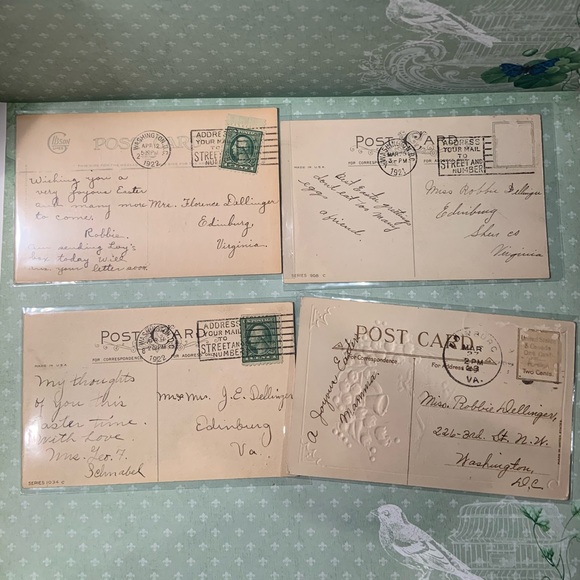 POST CARD
WASHINGTON, D.C.
APR 12
1922
ADDRESS
YOUR MAIL
TO
STREET AND
NUMBER
Wishing you a
very joyous Easter
and many more
to come,
Robbie.
Am sending Loy's
box today Will
rec your letter soon
Mrs. Florence Dellinger
Edinburg,
Virginia.
POST CARD
MADE IN U.S.A.
WASHINGTON, D.C.
MAR
PM
ADDRESS
YOUR MAIL
TO
STREET AND
NUMBER
Best Easter greetings
dont eat too many
eggs
a friend.
Miss Robbie Dellinger
Edinburg
Shen co
Virginia
POST CARD
FOR CORRESPONDENCE
1922
ADDRESS
YOUR MAIL
TO
STREET AND
NUMBER
My thoughts
of you this
Easter time.
With Love
Mrs. Geo. F.
Schnabel
Mr & Mrs. J. E. Dellinger
Edinburg
Va.
SERIES 1034 C
POST CARD
For Correspondence
For Address
MAR
2 PM
VA.
Two Cents
A Joyous Easter
Mamma
Miss. Robbie Dellinger,
226-3rd. St. N.W.
Washington,
D.C.